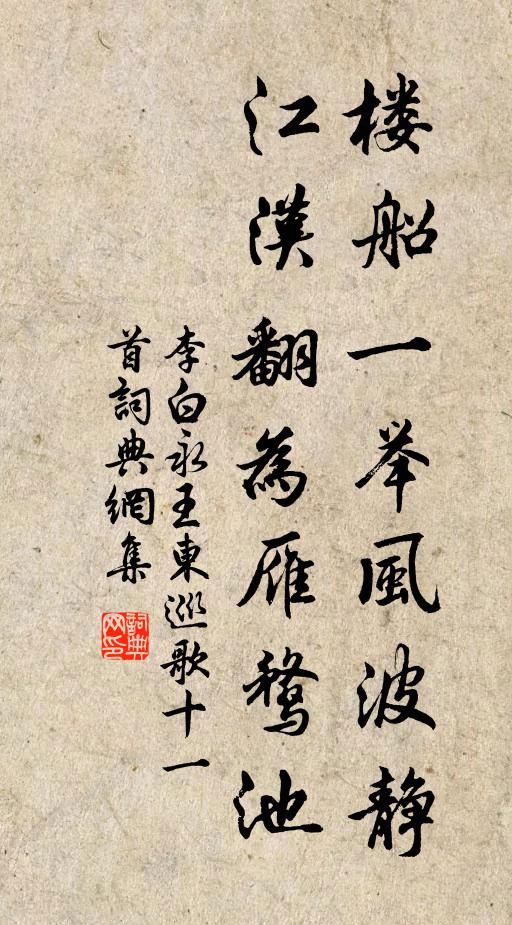 楼船一举風波静
江漢翻為雁鶩池
李白永王東巡歌十一
首詞典網集
詞典
网印